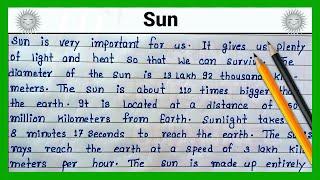 Sun
Sun is very important for us. It gives us plenty
of light and heat so that we can survive. The
diameter of the sun is 13 lakh 92 thousand kilo-
meters. The sun is about 110 times bigger than
the earth. It is located at a distance of 150
million kilometers from Earth. Sunlight takes
8 minutes 17 Seconds to reach the earth. The Sun's
rays reach the earth at a speed of 3 lakh kilo
meters per hour. The sun is made up entirely